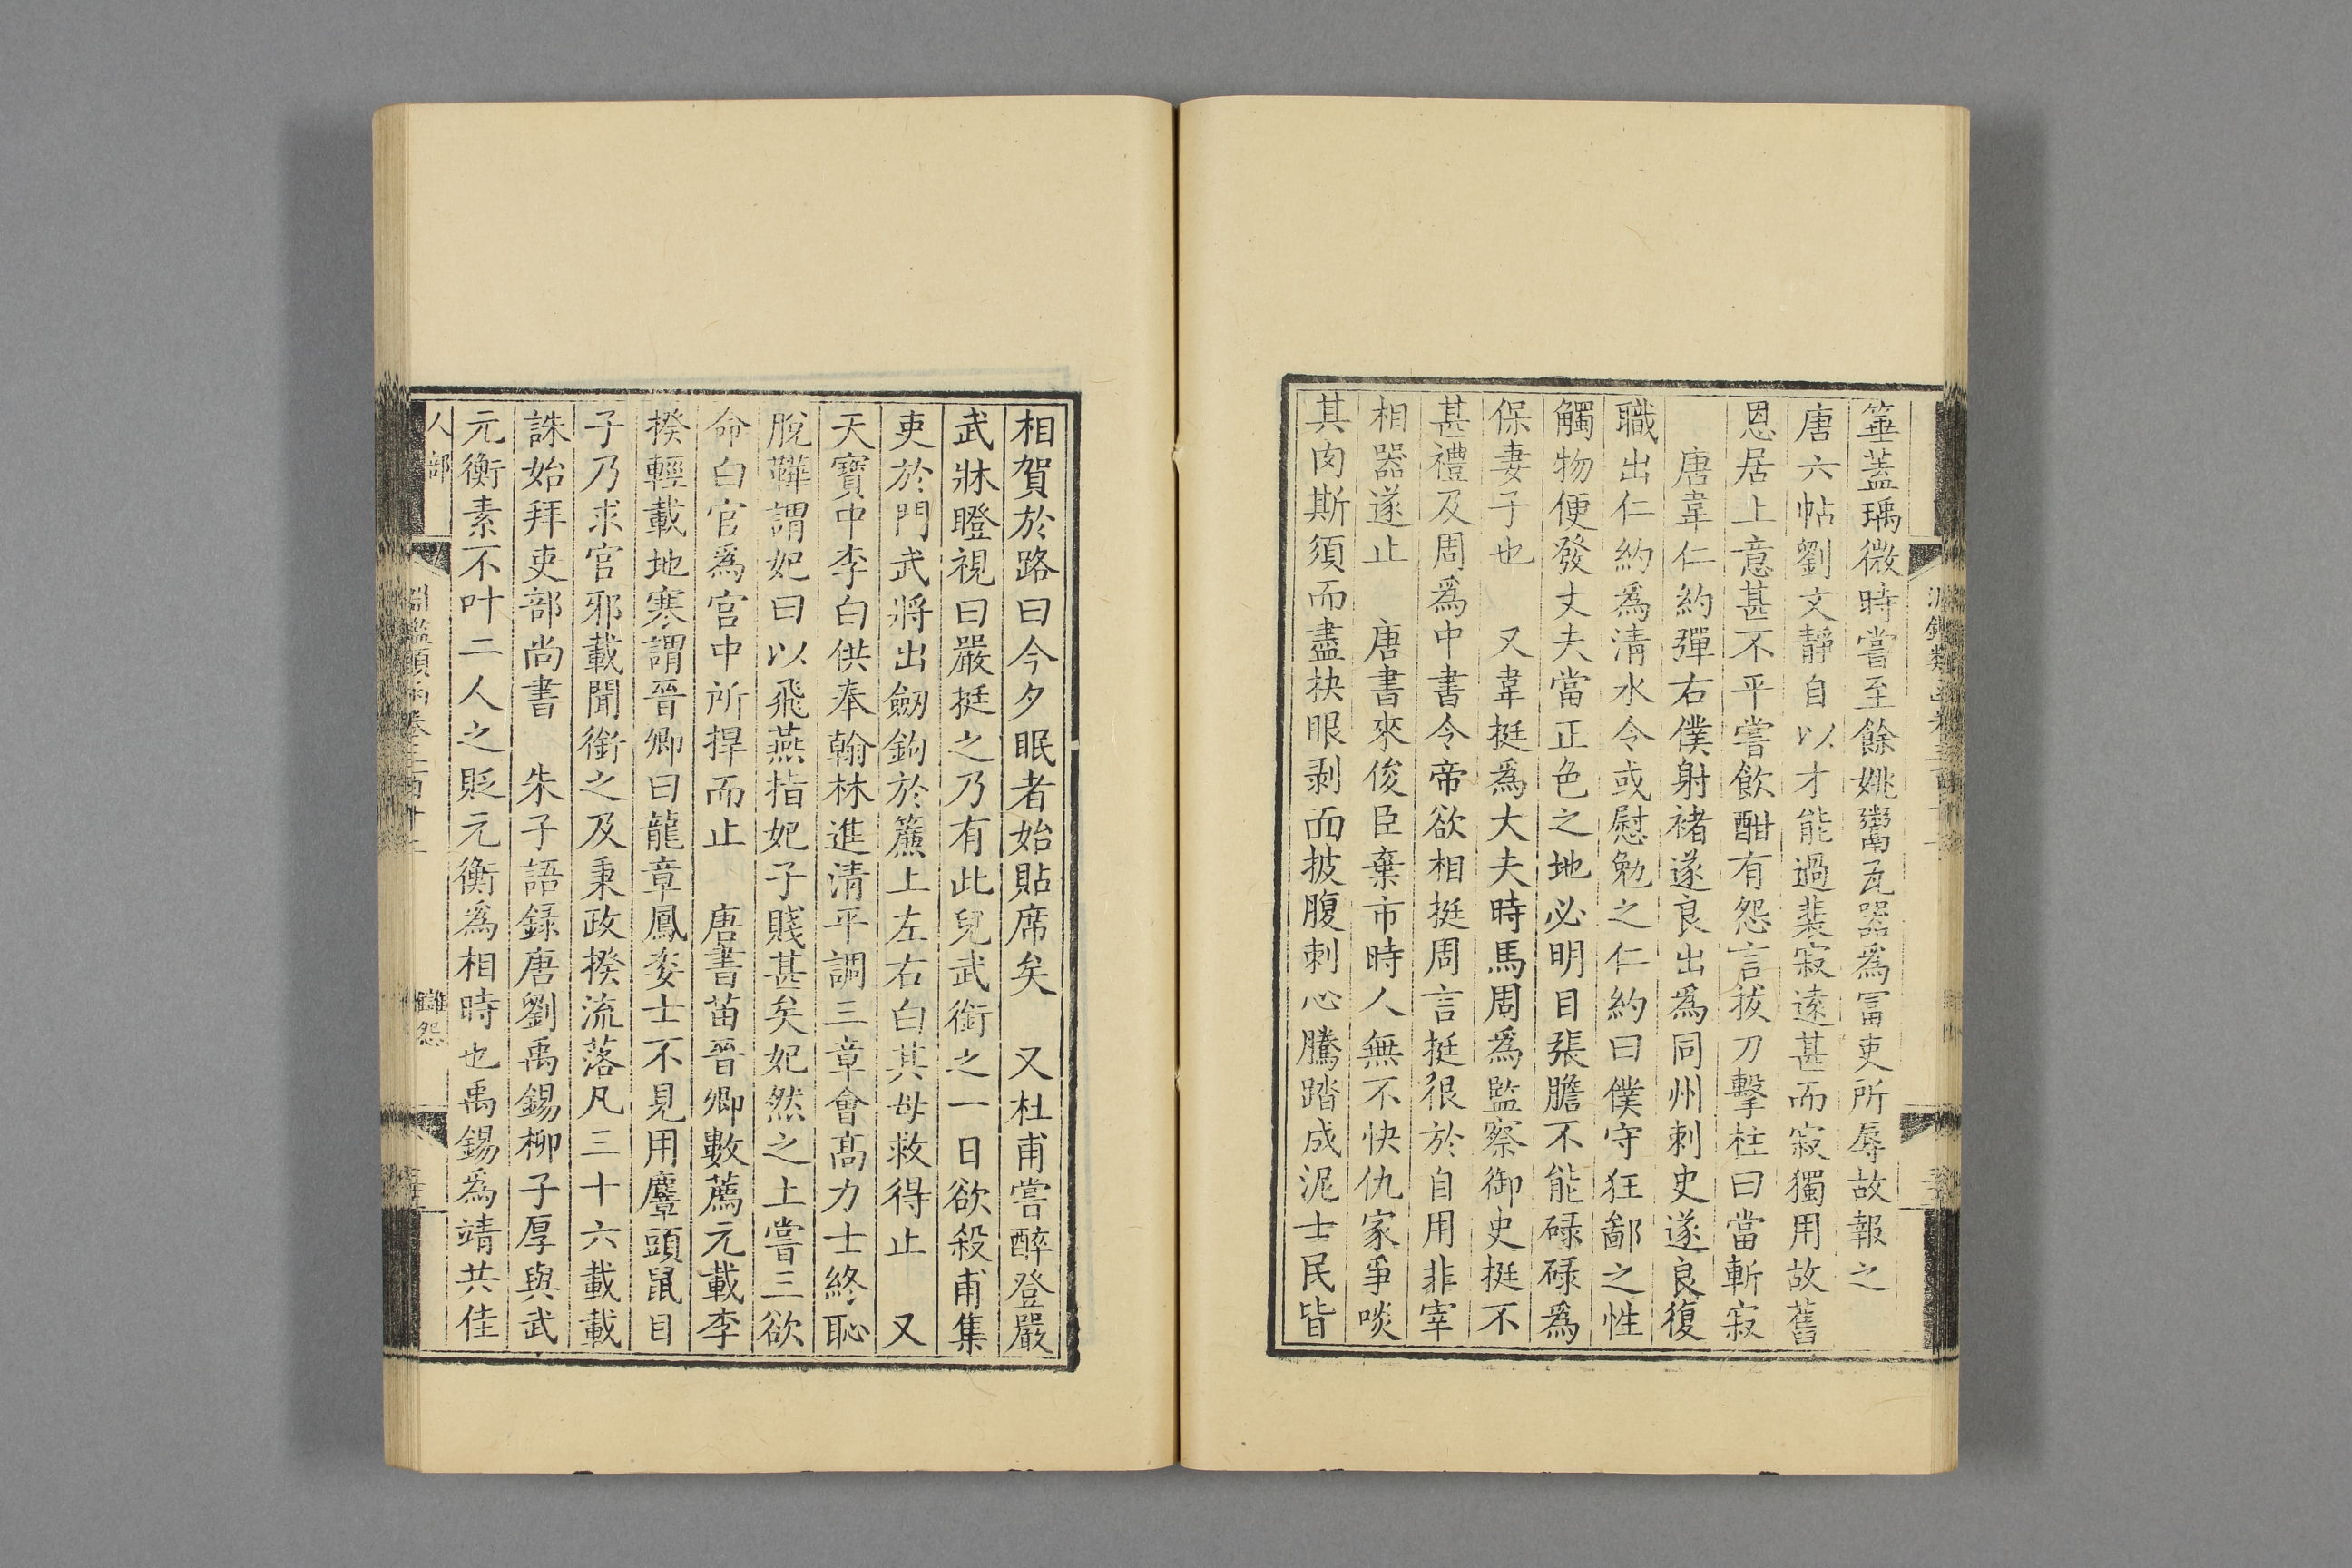 箠蓋瑀微時嘗至餘姚鬻瓦器爲冨吏所辱故報之
唐六帖劉文靜自以才能過裴寂遠甚而寂獨用故舊
恩居上意甚不平嘗飲酣有怨言拔刀擊柱曰當斬寂
唐韋仁約彈右僕射褚遂良出爲同州刺史遂良復
職出仁約爲清水令或慰勉之仁約曰僕守狂鄙之性
觸物便發丈夫當正色之地必明目張膽不能碌碌爲
保妻子也　又韋挺爲大夫時馬周爲監察御史挺不
甚禮及周爲中書令帝欲相挺周言挺很於自用非宰
相器遂止　唐書來俊臣棄市時人無不快仇家爭啖
其肉斯須而盡抉眼剥面披腹刺心騰踏成泥士民皆
相賀於路曰今夕眠者始貼席矣　又杜甫嘗醉登嚴
武牀瞪視曰嚴挺之乃有此兒武銜之一日欲殺甫集
吏於門武將出劒鉤於簾上左右白其母救得止　又
天寶中李白供奉翰林進清平調三章會髙力士終恥
脫鞾謂妃曰以飛燕指妃子賤甚矣妃然之上嘗三欲
命白官爲宫中所捍而止　唐書苗晉卿數薦元載李
揆輕載地寒謂晉卿曰龍章鳳姿士不見用麞頭鼠目
子乃求官邪載聞銜之及秉政揆流落凡三十六載載
誅始拜吏部尚書　朱子語録唐劉禹錫柳子厚與武
元衡素不叶二人之貶元衡爲相時也禹錫爲靖共佳
人部
淵鑑類函卷三百十
讎怨